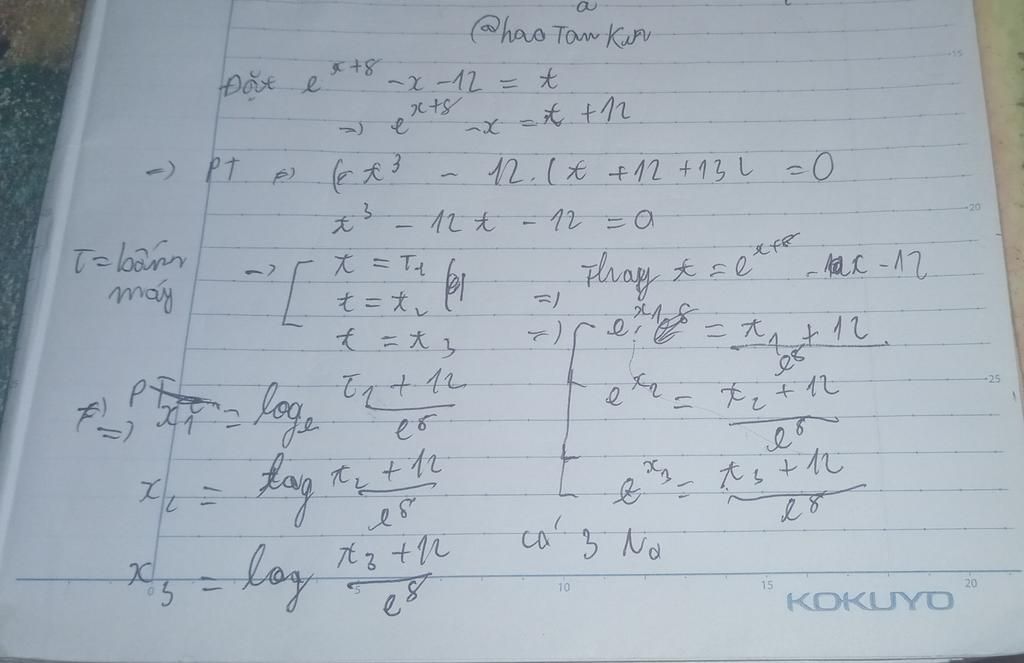 a
@haoTamKun
Đặt e^{x+8} - x - 12 = t
=> e^{x+8} - x = t + 12
=> PT <=> t^3 - 12.(t + 12 + 13) = 0
t^3 - 12t - 12 = 0
T = bấm máy
=> t = T1
t = t2
t = t3
=> Thay t = e^{x+8} - x - 12
=> e^{x1} = \frac{t1 + 12}{e^8}
e^{x2} = \frac{t2 + 12}{e^8}
e^{x3} = \frac{t3 + 12}{e^8}
=> x1 = log_e \frac{T1 + 12}{e^8}
x2 = log \frac{t2 + 12}{e^8}
x3 = log \frac{t3 + 12}{e^8}
có 3 No
15
20
25
0 5 10 15 20
KOKUYO